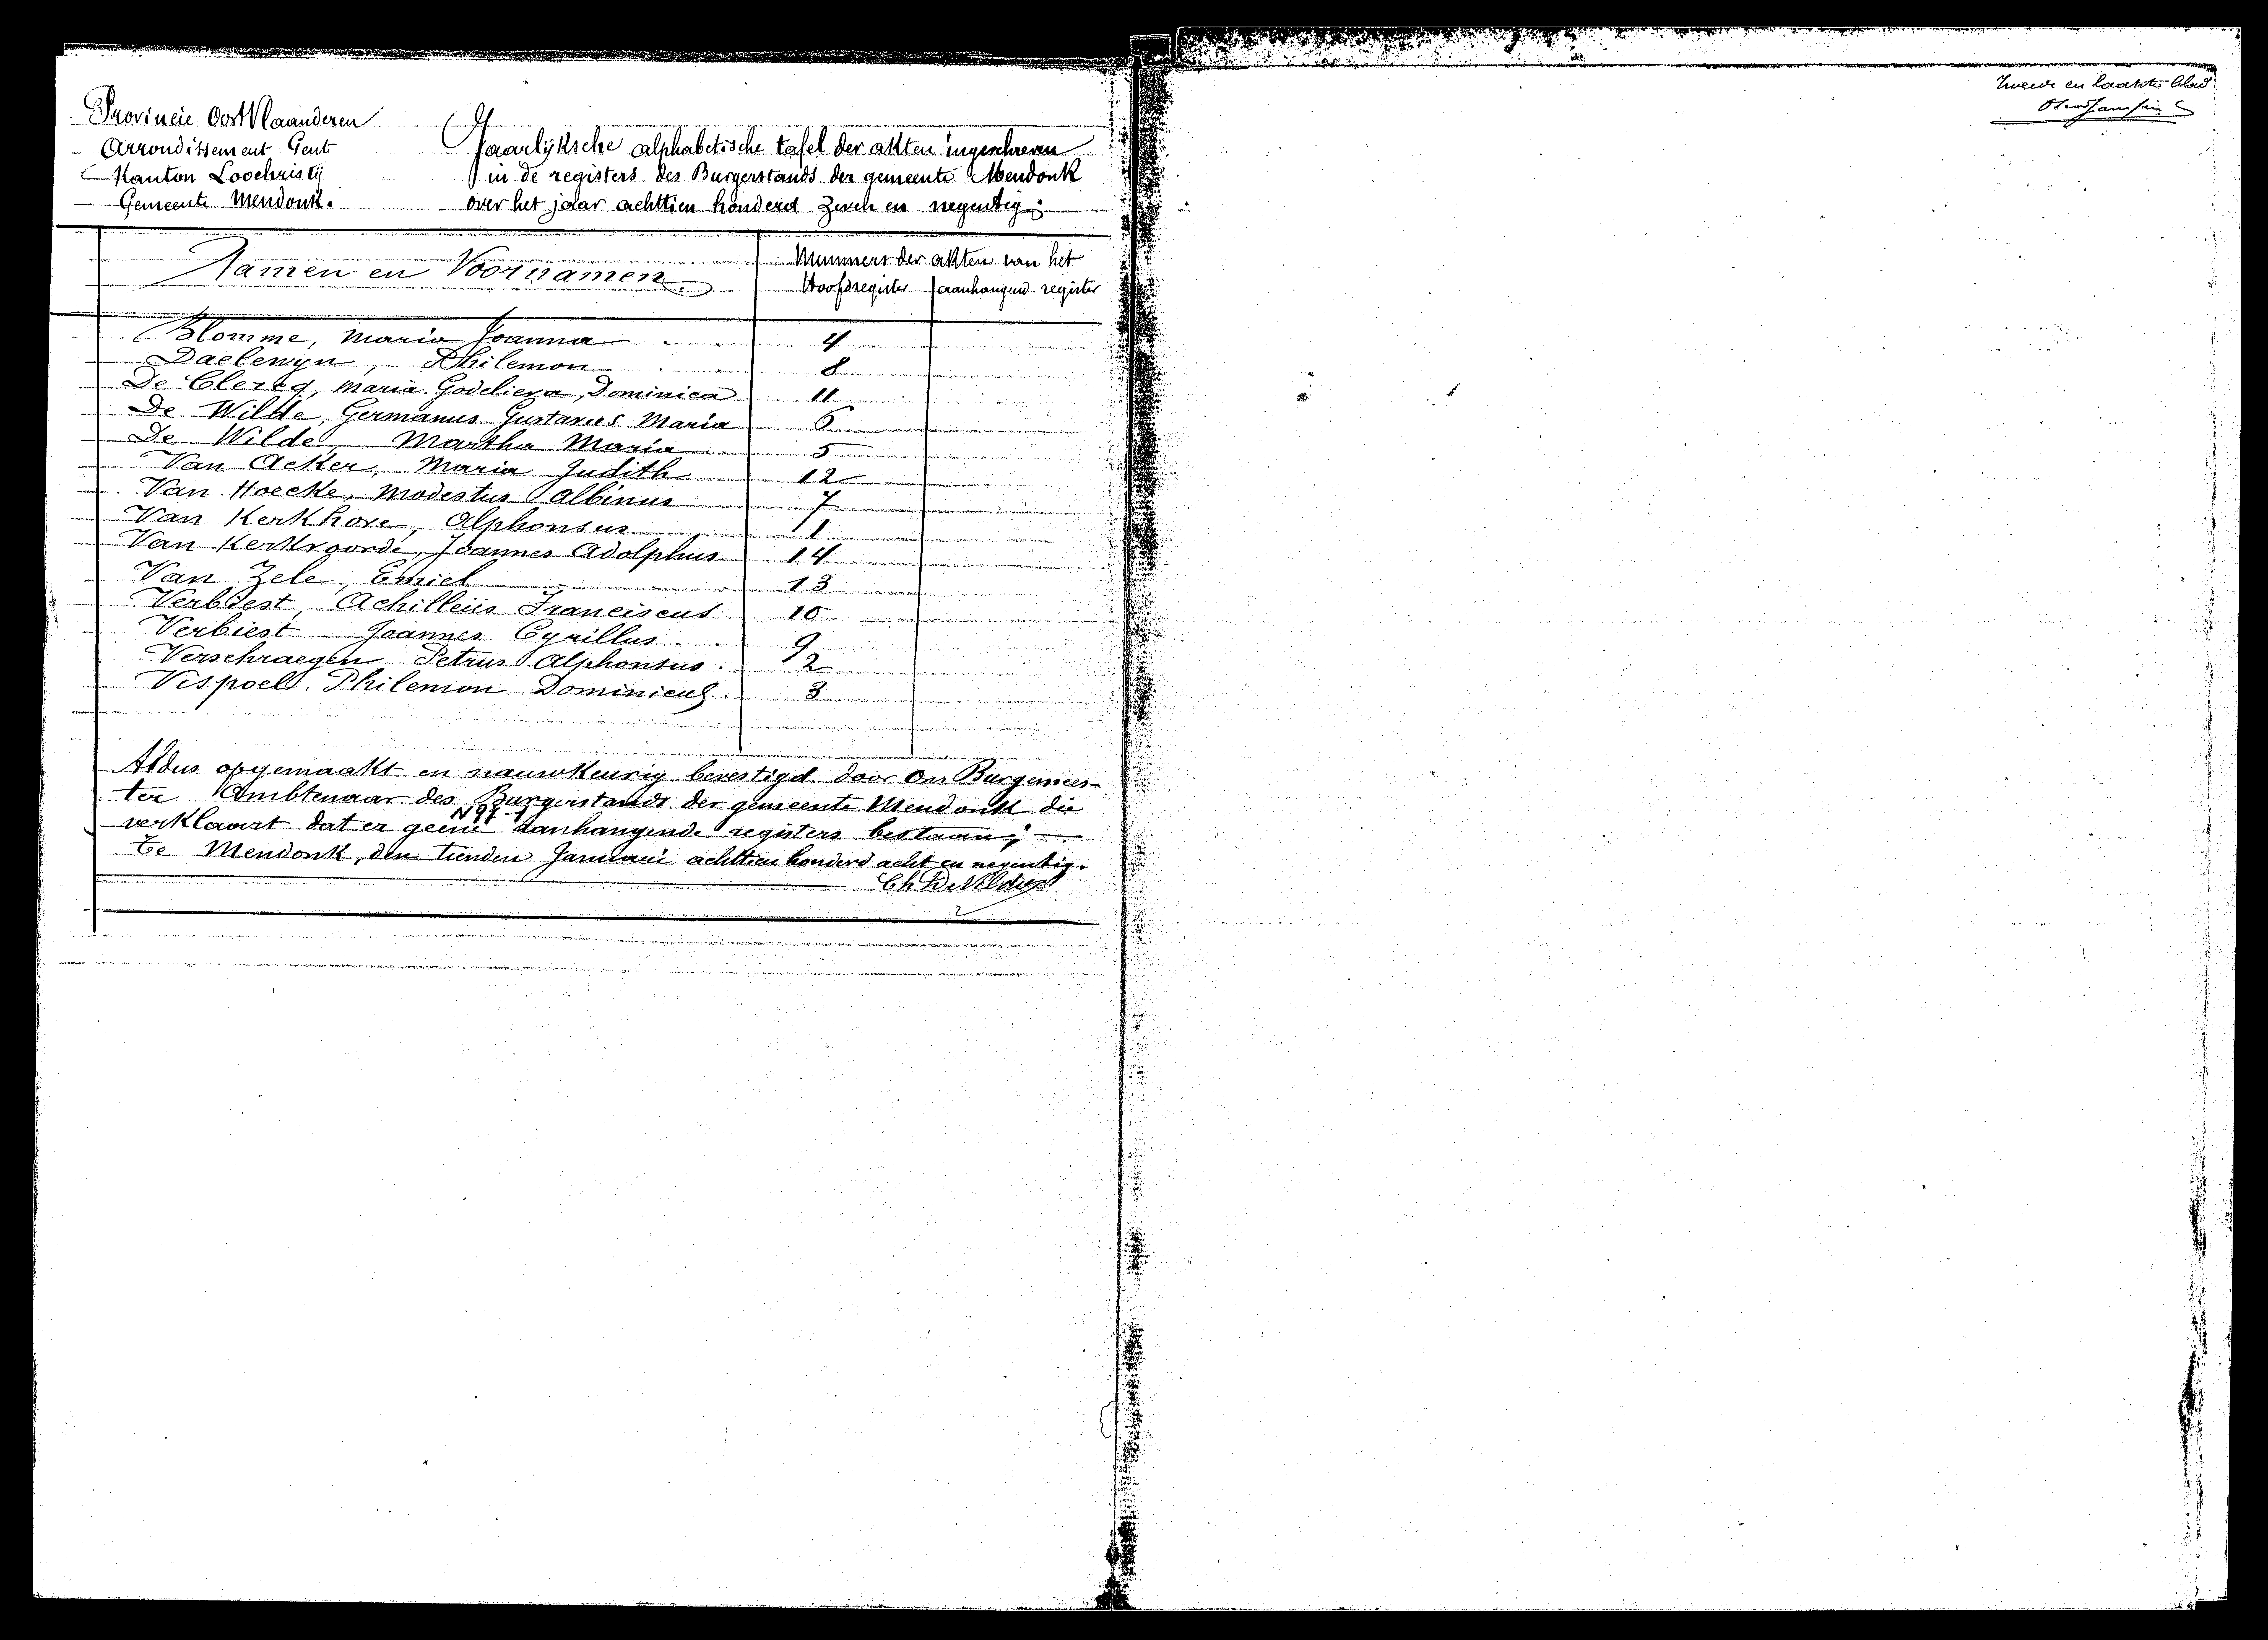 Provincie OostVlaanderen
Arrondissement Gent
Kanton Loochristij
Gemeente Mendonk.
Jaarlijksche alphabetische tafel der akten ingeschreven
in de registers des Burgerstands der gemeente Mendonk
over het jaar achttien honderd zeven en negentig;
Namen en Voornamen
Nummers der akten van het
Hoofdregister aanhangend register
Blomme, Maria Joanna 4
Daelewyn, Philemon 8
De Clercq, Maria Godelieva, Dominica 11
De Wilde, Germanus Gustavus Maria 6
De Wilde, Martha Maria 5
Van Acker, Maria Judith 12
Van Hoecke, Modestus Albinus 7
Van Kerkhove, Alphonsus 1
Van Kerkvoorde, Joannes Adolphus 14
Van Zele, Emiel 13
Verbiest, Achilleus Franciscus 10
Verbiest Joannes Cyrillus 9
Verschraegen Petrus Alphonsus. 2
Vispoel. Philemon Dominicus. 3
Aldus opgemaakt en nauwkeurig bevestigd door Ons Burgemees-
ter Ambtenaar des Burgerstands der gemeente Mendonk die
verklaart dat er geene aanhangende registers bestaan;
te Mendonk, den tienden Januari achttien honderd acht en negentig.
Tweede en laatste blad